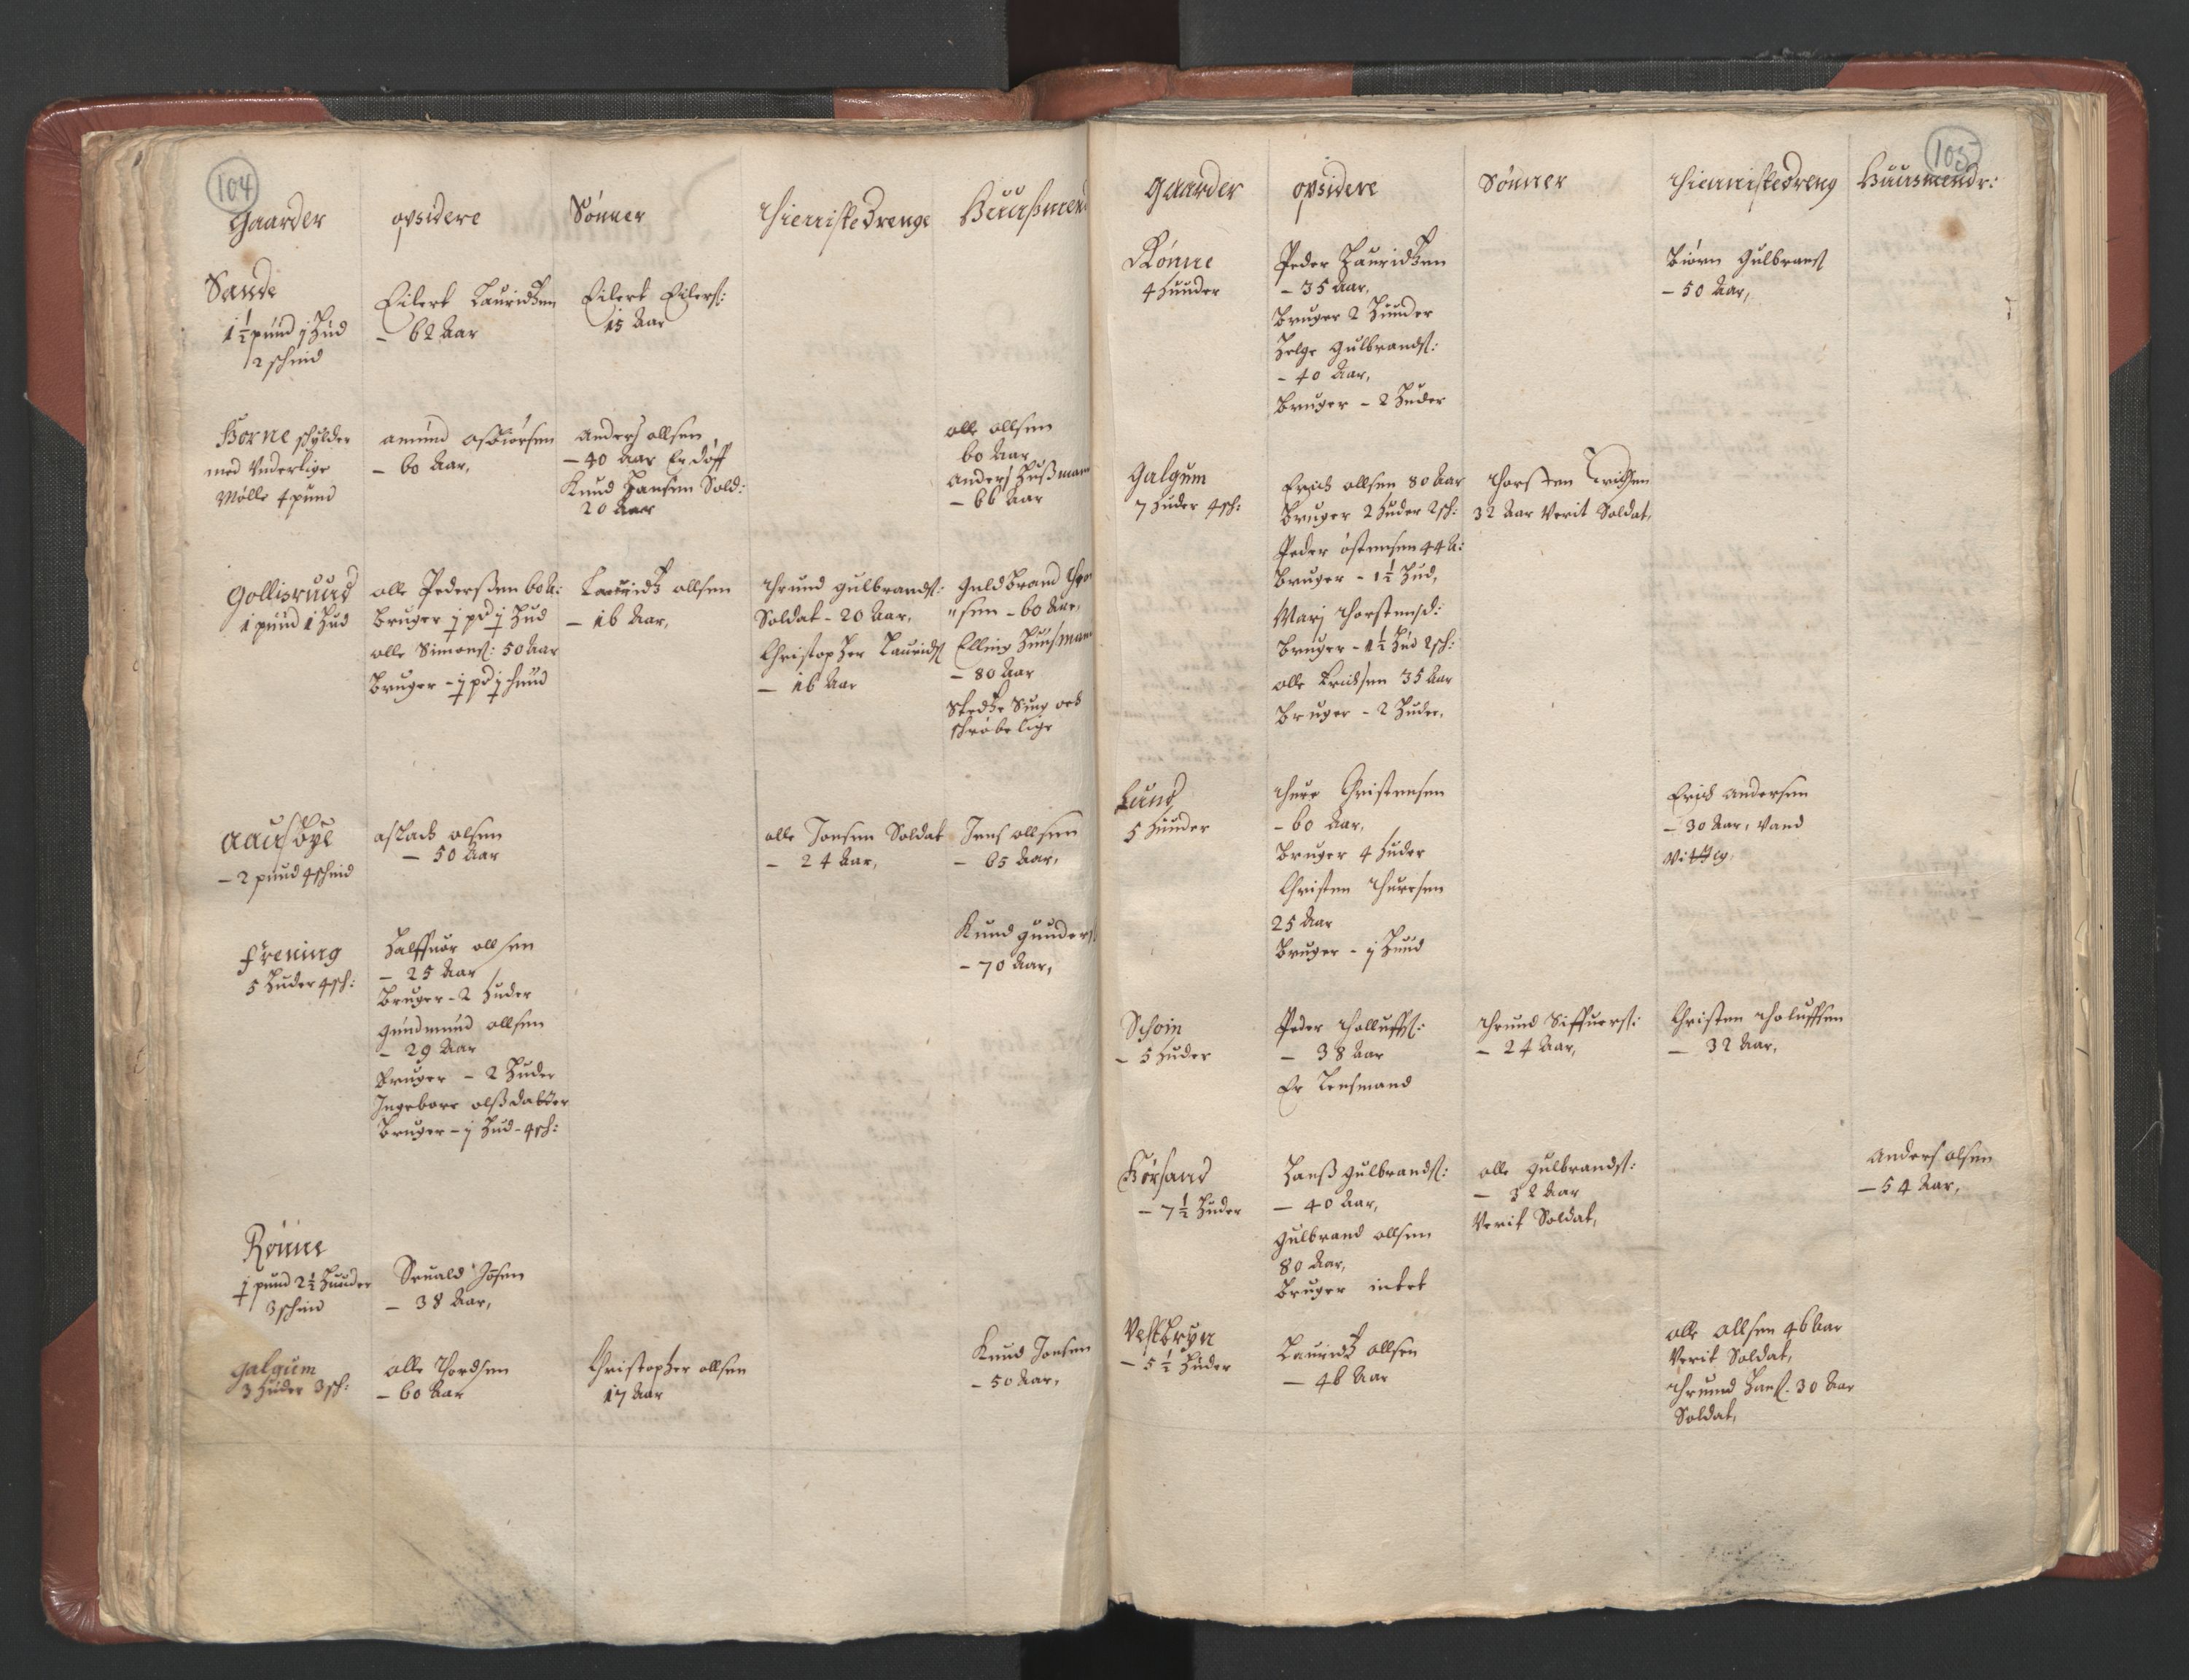 104
Gaarder opsidere Sønner Thienniste Drenge Huußmend
Sande
1½ pund j Hud
2 schind
Eilert Lauridtzen
- 62 Aar
Eilert Eilers:
15 Aar
Horne schylder
med Underlige
Mølle 4 pund
Amund Asbiørsen
- 60 Aar,
Anders ollsen
- 40 Aar Er døff
Knud Hansen Sold:
20 Aar
olle ollsen
60 Aar
Anders Hußmann
- 66 Aar
Gollisruud
1 pund 1 Hud
olle Pederßen 60 A:
Bruger j pd j Hud
olle Simons: 50 Aar
Bruger - j pd j huud
Lauridtz ollsen
- 16 Aar,
Thrund Gulbrands:
Soldat - 20 Aar,
Christopher Laurids
- 16 Aar
Guldbrand
- 60 Aar,
Elling Huusmann
- 80 Aar
Stedtze Siug och
schrøbelige
Aausbye
- 2 pund 4 schind
Aslach olsen
- 50 Aar
olle Jonsen Soldat
- 24 Aar,
Jens ollsen
- 65 Aar,
Frening
5 Huder 4 sch:
Halffuor ollsen
- 25 Aar
Bruger - 2 Huder
Gundmund ollsen
- 29 Aar
Bruger - 2 Huder
Ingebore olßdatter
Bruger - j Hud - 4 sch:
Knud Gunders
- 70 Aar,
Rønne
j pund 2½ Huuder
3 schind
Siuald Josen
- 38 Aar,
Galgum
3 Huder 3 sch:
olle Thordsen
- 60 Aar
Christopher ollsen
17 Aar
Knud Jonsen
- 50 Aar,
105
Gaarder opsidere Sønner Thienniste Dreng Huusmendr:
Rønne
4 Huuder
Peder Lauridtzen
- 35 Aar,
Bruger 2 Huuder
Helge Gulbrands:
- 40 Aar,
Bruger - 2 Huder
Biørn Gulbrans
- 50 Aar,
Galgum
7 Huder 4 sch:
Erich ollsen 80 Aar
Bruger 2 Huder 2 sch:
Peder østensen 44 A:
Bruger - 1½ Hud,
Marj Thorstensd:
Bruger - 1½ Hud 2 sch:
olle Erichsen 35 Aar
Bruger - 2 Huder,
Thorsten Erichsen
32 Aar Verit Soldat,
Lund
5 Huuder
Thure Christensen
- 60 Aar,
Bruger 4 Huder
Christen Thuresen
25 Aar
Bruger - j Huud
Erich Andersen
- 30 Aar, Vand
Vittig,
Schoin
- 5 Huder
Peder Tholluffs:
- 38 Aar
Er Lensmand
Thrund Siffuers:
- 24 Aar,
Christen Tholuffsen
- 32 Aar,
Hørsand
- 7½ Huder
Hanß Gulbrands:
- 40 Aar,
Gulbrand ollsen
80 Aar,
Bruger intet
olle Gulbrands:
- 32 Aar
Verit Soldat,
Anders olsen
- 54 Aar,
Vestbryn
- 5½ Huder
Lauridtz ollsen
- 46 Aar
olle ollsen 46 Aar
Verit Soldat,
Thrund Hans: 30 Aar
Soldat,